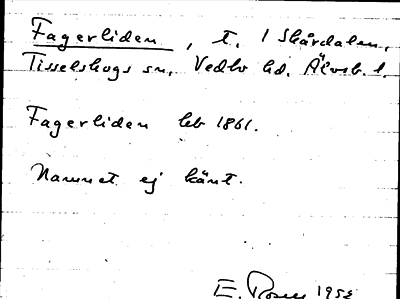 Fagerliden, t. 1 Skårdalen,
Tisselskogs sn, Vedbo hd, Älvsb. l.
Fagerliden hb 1861.
Namnet ej känt.
E. 195